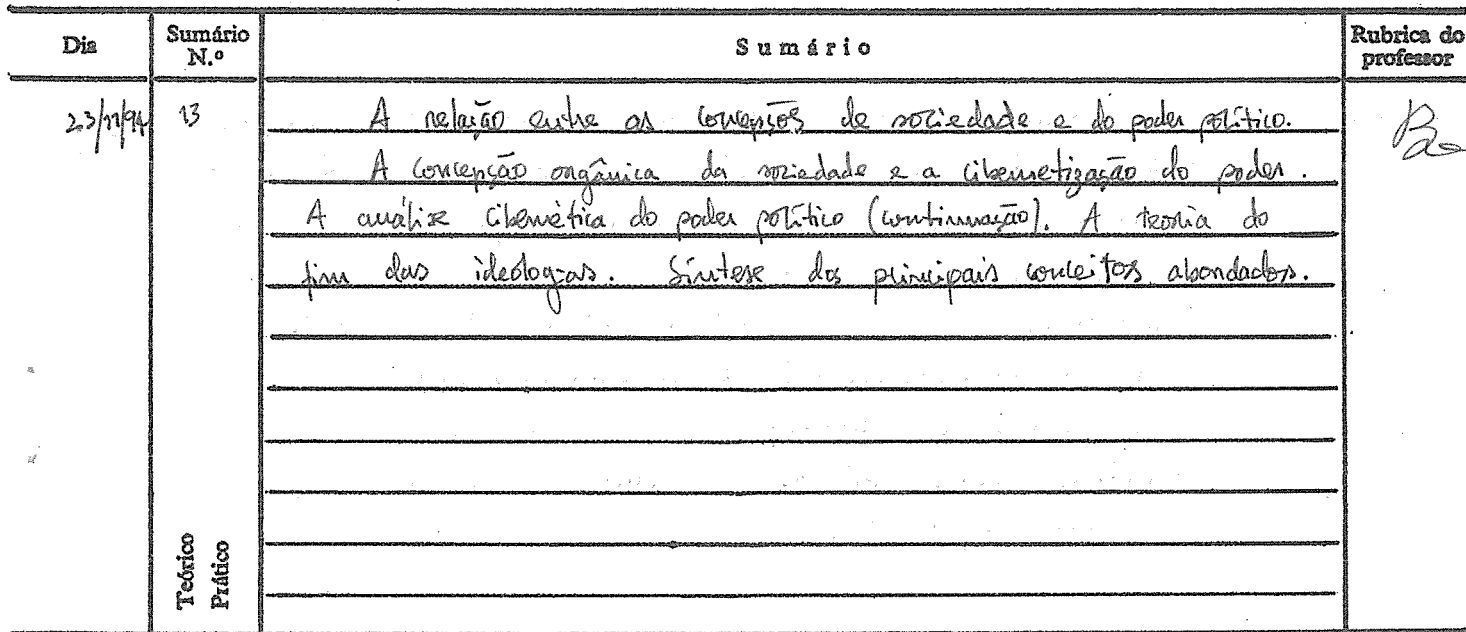 Dia Sumário N.º Sumário Rubrica do professor
23/11/94 13 A relação entre as concepções de sociedade e do poder político.
A concepção orgânica da sociedade e a cibernetização do poder.
A análise cibernética do poder político (continuação). A teoria do
fim das ideologias. Síntese dos principais conceitos abordados.
Teórico
Prático